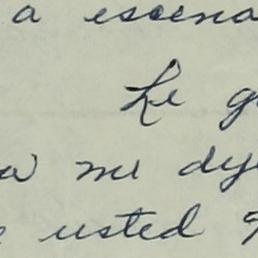 a escena
Le g
a me dij
usted